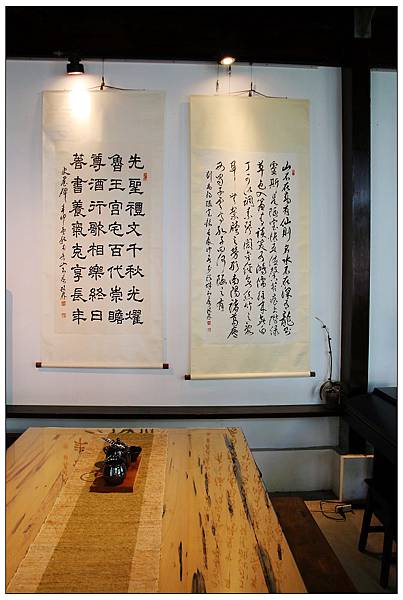 山不在高有仙則名水不在深有龍則
靈斯是陋室惟吾德馨苔痕上階綠
草色入簾青談笑有鴻儒往來無白
丁可以調素琴閱金經無絲竹之亂
耳無案牘之勞形南陽諸葛廬
西蜀子雲亭孔子云何陋之有
劉禹錫陋室銘
先聖禮文千秋光燿
魯王宮宅百代崇瞻
尊酒行歌相樂終日
著書養氣克享長年
史晨碑